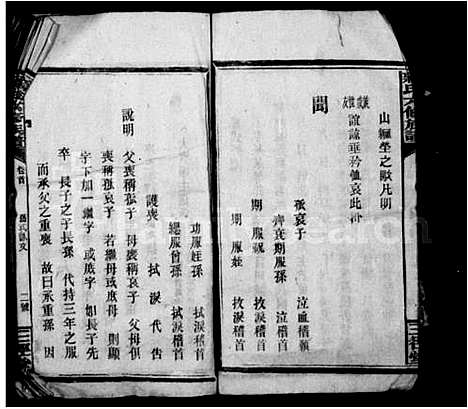 山繼塋之歐凡明
誼諒垂矜恤哀此訃
聞
孤哀子 泣血稽顙
齊衰期服孫 泣稽首
期服 抆淚稽首
期服姪 抆淚稽首
功服姪孫 拭淚稽首
緦服曾孫 拭淚稽首
護喪 拭淚代告
說明 父喪稱孤子 母喪稱哀子 父母俱
喪稱孤哀子 若繼母或庶母 則顯
字下加一繼字 或庶字 如長子先
卒 長子之子長孫 代持三年之服
而承父之重喪 故曰承重孫 因
卷首
二號
FamilySearch